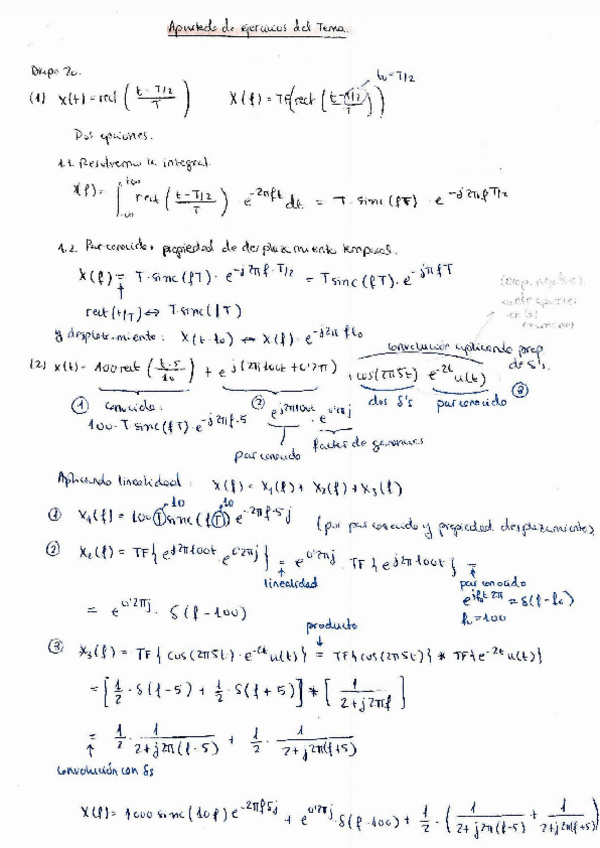 Apartado de ejercicios del Tema
Grupo 20.
(1) x(t) = rect((t - T/2)/T)   X(f) = TF{rect((t - T/2)/T)}   t0 = T/2
Dos opciones.
1.1. Resolvemos la integral.
X(f) = ∫_{-∞}^{+∞} rect((t - T/2)/T) e^{-2πft} dt = T·sinc(fT)·e^{-j2πf T/2}
1.2. Par conocido + propiedad de desplazamiento temporal.
X(f) = T·sinc(fT)·e^{-j2πf·T/2} = T sinc(fT)·e^{-jπfT}
rect(t/T) ↔ T·sinc(fT)
y desplazamiento: x(t-t0) ↔ X(f)·e^{-j2πft0}
convolución aplicando prop de δ's.
(2) x(t) = 100rect((t-5)/10) + e^{j(2π100t+0'2π)} + cos(2π5t) e^{-2t}u(t)
① conocido: ② e^{j2π100t}·e^{0'2πj} dos δ's par conocido ③
100·T sinc(fT)·e^{-j2πf·5}
par conocido factor de
Aplicando linealidad: X(f) = X1(f) + X2(f) + X3(f)
10 10
① X1(f) = 100 T sinc(fT) e^{-2πf·5j} (por par conocido y propiedad desplazamiento)
② X2(f) = TF{e^{j2π100t}·e^{0'2πj}} = e^{0'2πj}·TF{e^{j2π100t}} =
linealidad par conocido
e^{jf0t2π} = δ(f-f0)
f0 = 100
= e^{0'2πj}·δ(f-100)
producto
③ X3(f) = TF{cos(2π5t)·e^{-2t}u(t)} = TF{cos(2π5t)} * TF{e^{-2t}u(t)}
= [1/2·δ(f-5) + 1/2·δ(f+5)] * [1/(2+j2πf)]
= 1/2·1/(2+j2π(f-5)) + 1/2·1/(2+j2π(f+5))
convolución con δs
X(f) = 1000 sinc(10f) e^{-2πf5j} + e^{0'2πj}·δ(f-100) + 1/2·(1/(2+j2π(f-5)) + 1/(2+j2π(f+5)))